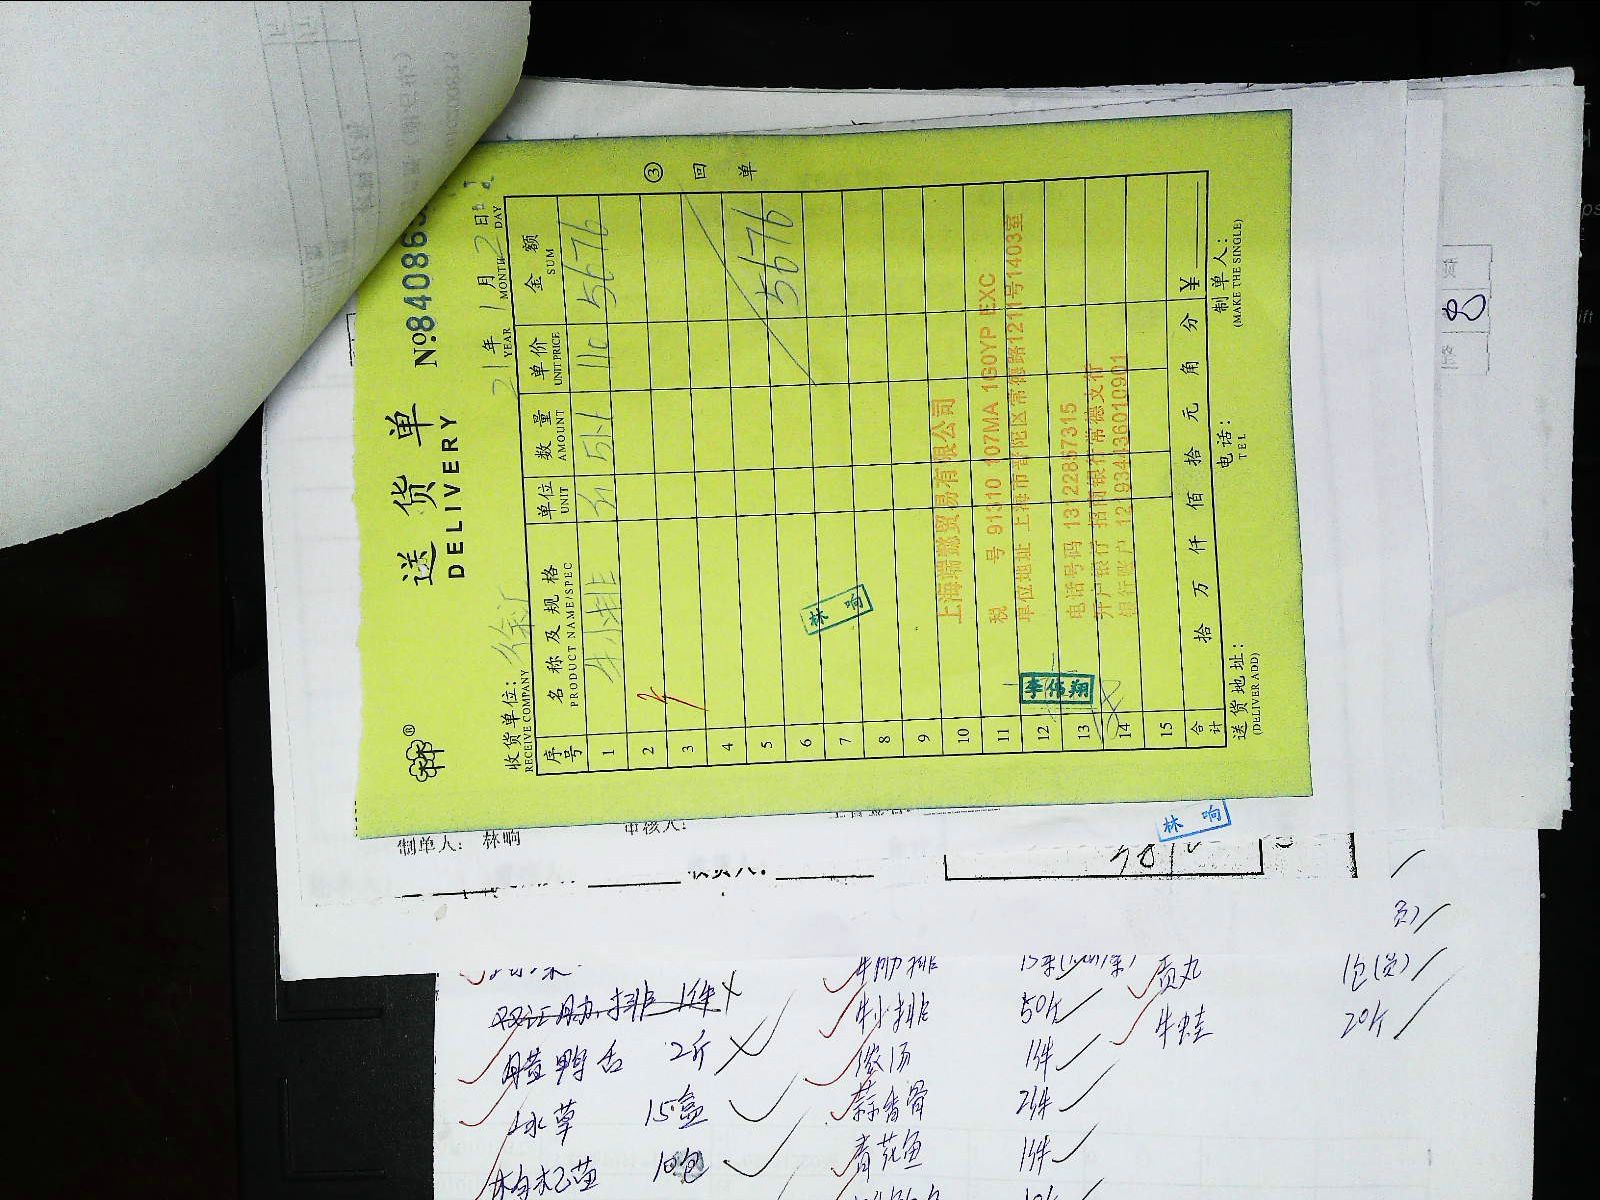 送货单
DELIVERY
№840863
收货单位: 徐汇
RECEIVE COMPANY
21年1月2日
YEAR MONTH DAY
③ 回单
序号 名称及规格 单位 数量 单价 金额
PRODUCT NAME/SPEC UNIT AMOUNT UNIT PRICE SUM
1 牛小排 斤 5676
2
3
4
5
6 5676
7
8
9
10
11
12
13
14
15
林响
上海端懿贸易有限公司
税号 91310 107MA 1G0YP EXC
单位地址 上海市普陀区常德路1211号1403室
电话号码 13122857315
开户银行 招商银行常德支行
银行账户 121934436010901
李伟翔
合计 拾 万 仟 佰 拾 元 角 分 ¥
送货地址:
(DELIVER ADD)
电话:
TEL
制单人:
(MAKE THE SINGLE)
制单人: 林响
审核人:
林响
双汇肋排 1件
腊鸭舌 2斤
冰草 15盒
10包
牛肋排
牛小排 50斤
浓汤 1件
蒜香骨 2件
青花鱼 1件
贡丸 1包(贡)
牛蛙 20斤